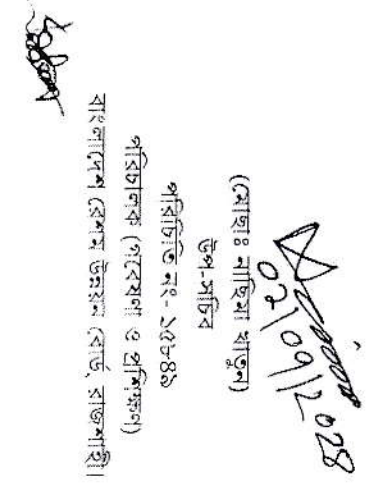 ০২/০৭/২০২৪
(মোছাঃ নাছিমা খাতুন)
উপ-সচিব
পরিচিতি নং- ১৫৮৪৯
পরিচালক (গবেষণা ও প্রশিক্ষণ)
বাংলাদেশ রেশম উন্নয়ন বোর্ড, রাজশাহী।